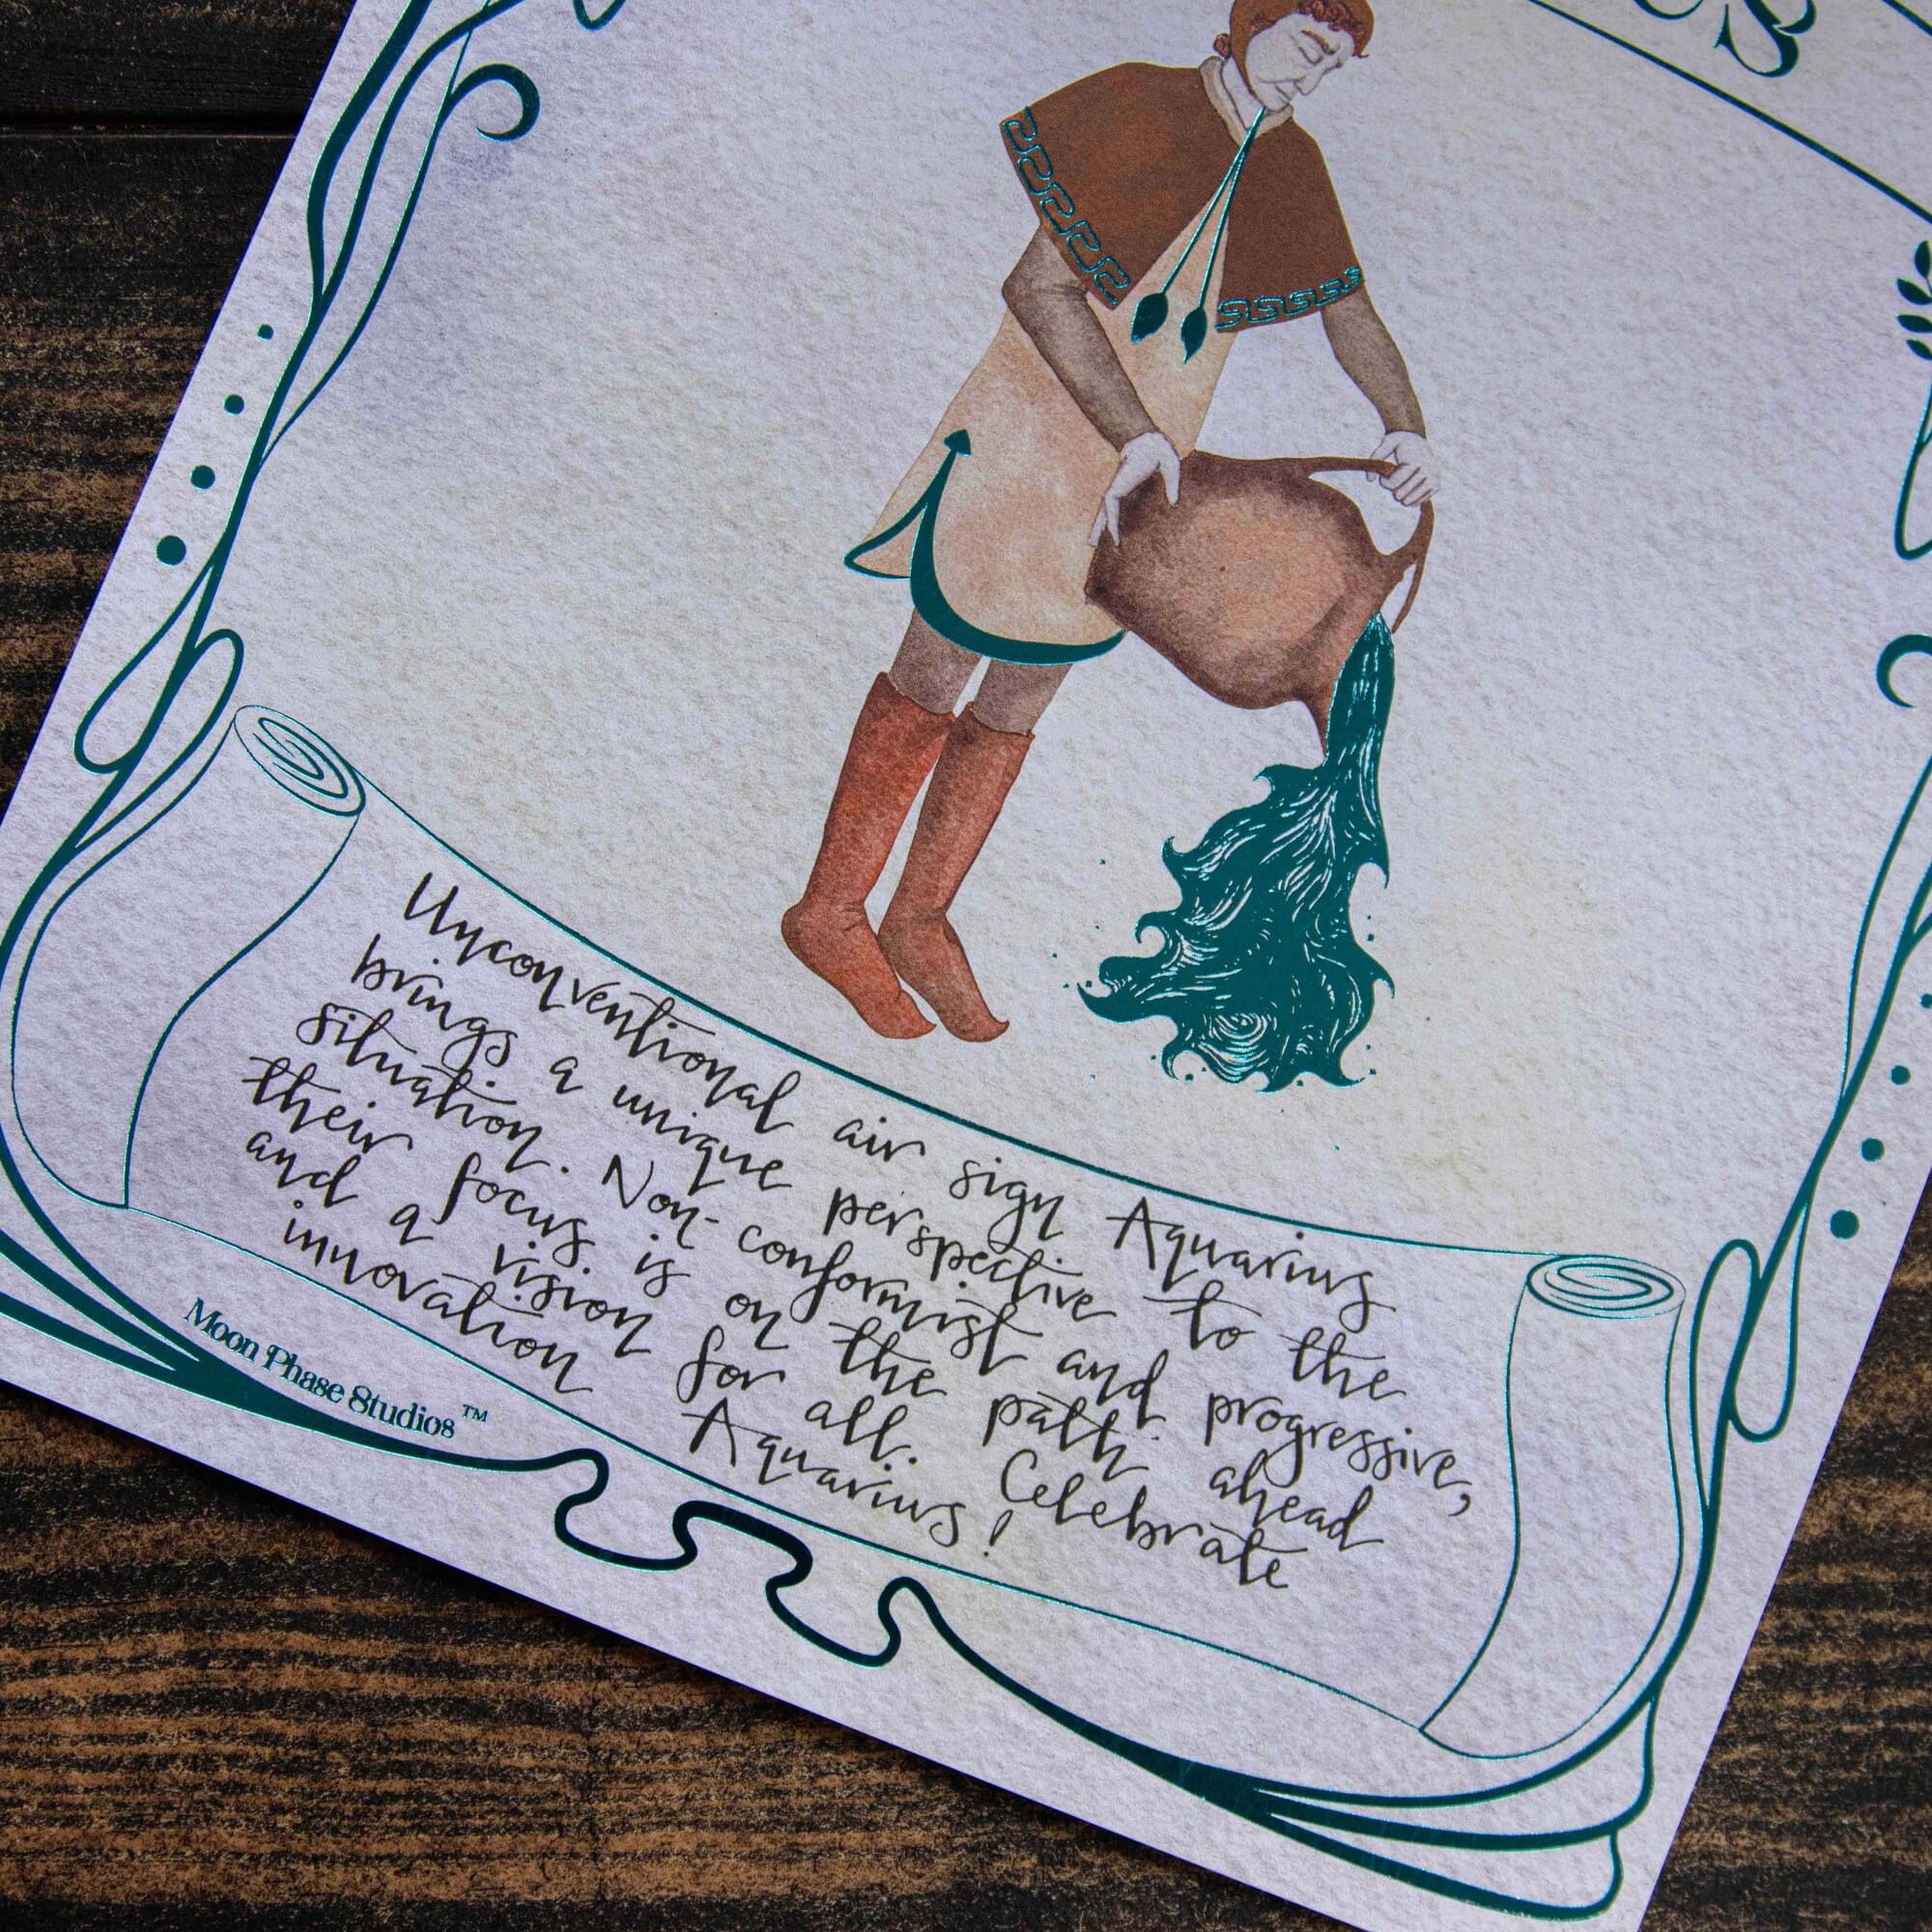 Unconventional air sign Aquarius
brings a unique perspective to the
situation. Non-conformist and progressive,
their focus is on the path ahead
and a vision for all. Celebrate
innovation Aquarius!
Moon Phase Studios™